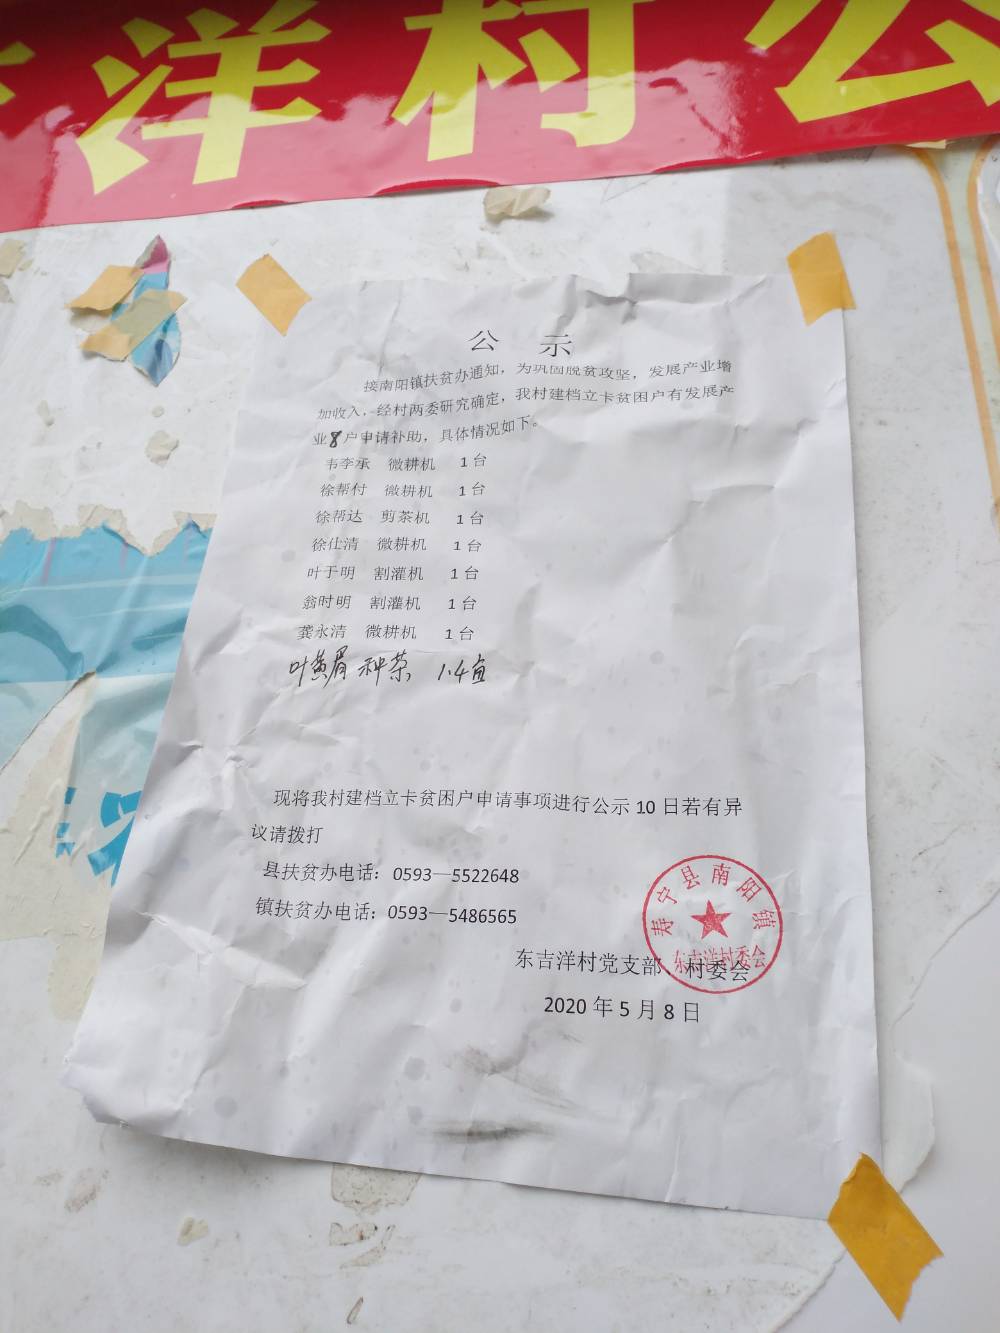 洋村公
公 示
接南阳镇扶贫办通知，为巩固脱贫攻坚，发展产业增
加收入，经村两委研究确定，我村建档立卡贫困户有发展产
业8户申请补助，具体情况如下。
韦李承 微耕机 1台
徐帮付 微耕机 1台
徐帮达 剪茶机 1台
徐仕清 微耕机 1台
叶于明 割灌机 1台
翁时明 割灌机 1台
龚永清 微耕机 1台
叶黄眉 种茶 1.4亩
现将我村建档立卡贫困户申请事项进行公示 10 日若有异
议请拨打
县扶贫办电话：0593—5522648
镇扶贫办电话：0593—5486565
东吉洋村党支部、村委会
2020 年 5 月 8 日
寿宁县南阳镇
东吉洋村委会